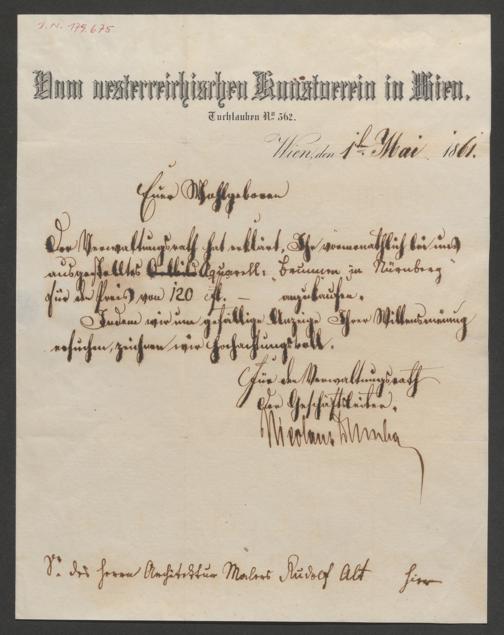 I.N. 179.675
Vom oesterreichischen Kunstverein in Wien.
Tuchlauben No 562.
Wien, den 1t Mai 1861.
Euer Wohlgeboren
Der Verwaltungsrath hat erklärt, Ihr vormonathlich bei uns
ausgestelltes Aquarell: "Brunnen zu Nürnberg"
für den Preis von 120 fl. – anzukaufen.
Indem wir um gefällige Anzeige Ihrer Willensmeinung
ersuchen, zeichnen wir hochachtungsvoll.
Für den Verwaltungsrath
der Geschäftsleiter.
Nicolaus Dumba
Sr. des Herrn Architektur Malers Rudolf Alt hier